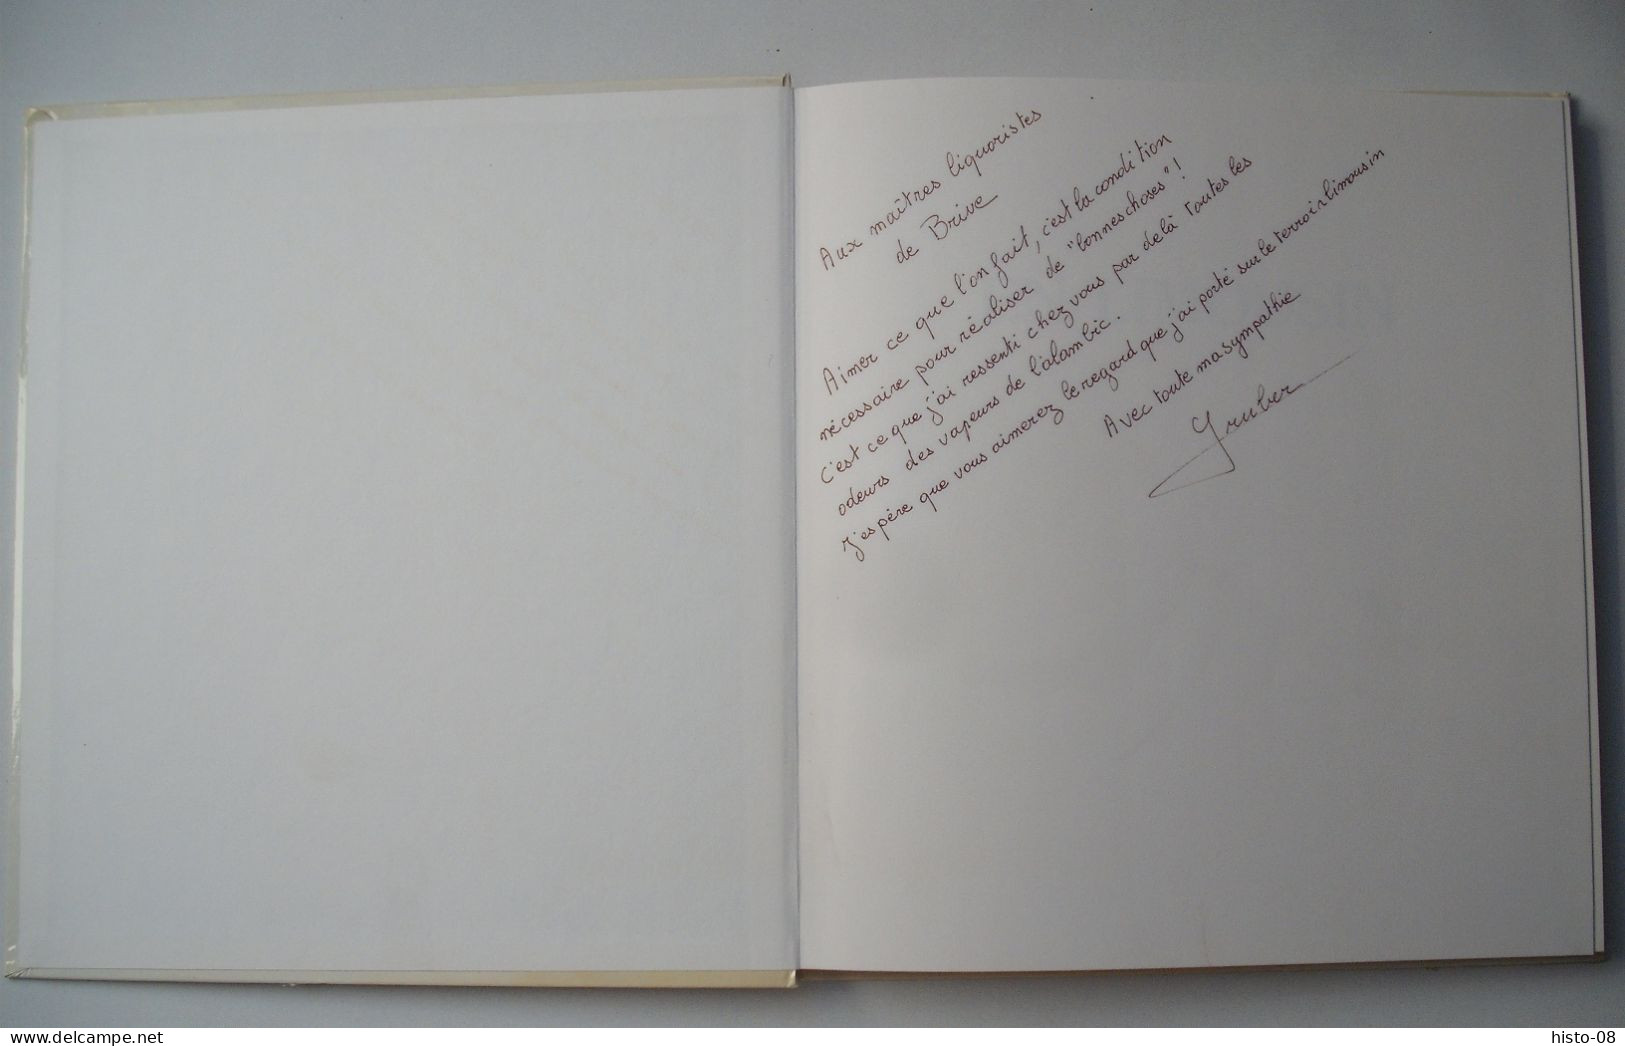 Aux maîtres liquoristes
de Brive
Aimer ce que l'on fait, c'est la condition
nécessaire pour réaliser de "bonnes choses" !
c'est ce que j'ai ressenti chez vous par delà toutes les
odeurs des vapeurs de l'alambic.
J'espère que vous aimerez le regard que j'ai porté sur le terroir limousin
Avec toute ma sympathie
Gruber
www.delcampe.net
histo-08